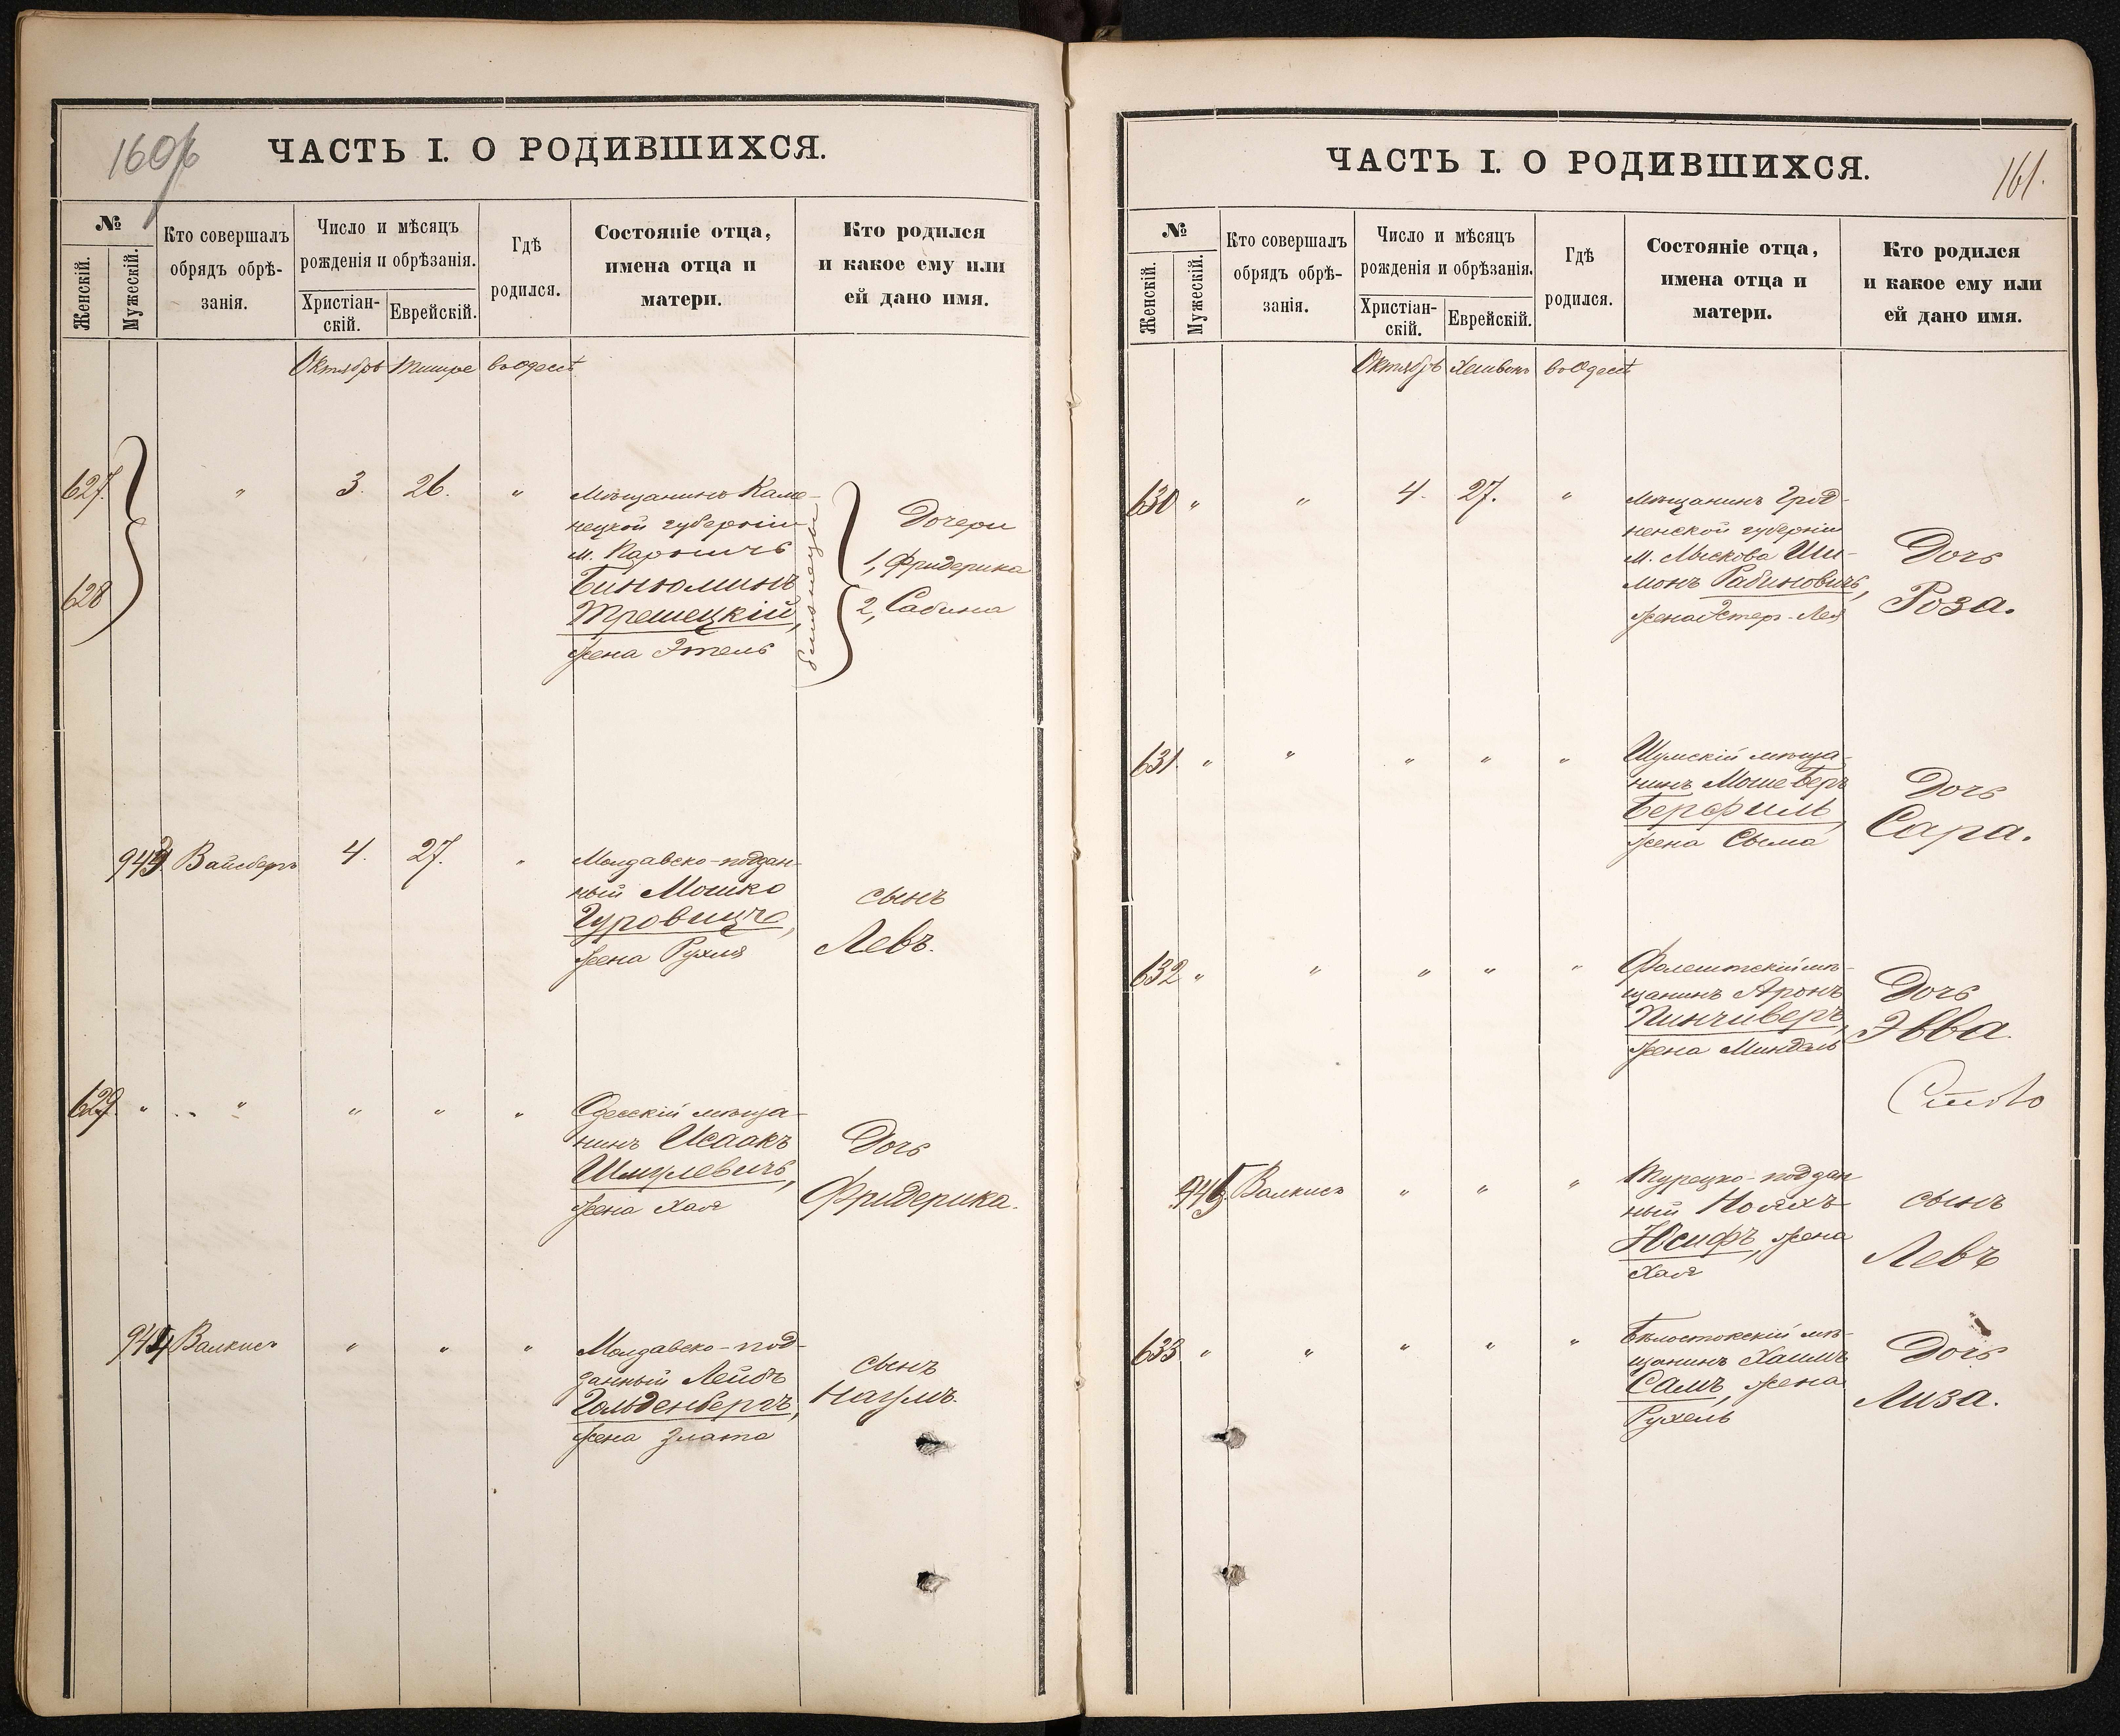 160об
ЧАСТЬ I. О РОДИВШИХСЯ.
№
Женскій.
Мужескій.
Кто совершалъ
обрядъ обрѣ-
занія.
Число и мѣсяцъ
рожденія и обрѣзанія.
Христіан-
скій.
Еврейскій.
Гдѣ
родился.
Состояніе отца,
имена отца и
матери.
Кто родился
и какое ему или
ей дано имя.
Октябрь Тишре въ Одессѣ
627. " 3. 26. "
628
Мѣщанинъ Каме-
нецкой губерніи
м.
Бинюминъ
Трешецкій,
жена Этель
близнецы
Дочери
1, Фридерика
2, Сабина
943 Вайсбергъ 4. 27. "
Молдавско-поддан-
ный Мошко
Гуровицъ,
жена Рухля
сынъ
Левъ.
629. " " " " "
Одесскій мѣща-
нинъ Исаакъ
Шмулевичъ,
жена Хая
Дочь
Фридерика.
944 Валкисъ " " "
Молдавско-под-
данный Лейбъ
Гольденбергъ,
жена Злата
сынъ
Наумъ.
161.
ЧАСТЬ I. О РОДИВШИХСЯ.
№
Женскій.
Мужескій.
Кто совершалъ
обрядъ обрѣ-
занія.
Число и мѣсяцъ
рожденія и обрѣзанія.
Христіан-
скій.
Еврейскій.
Гдѣ
родился.
Состояніе отца,
имена отца и
матери.
Кто родился
и какое ему или
ей дано имя.
Октябрь Хешвонъ въ Одессѣ
630 " " 4. 27. "
Мѣщанинъ Грод-
ненской губерніи
м. Лыскова Ши-
монъ Рабиновичъ,
жена Эстеръ-Лея
Дочь
Роза.
631 " " " " "
Шумскій мѣща-
нинъ Моше Беръ
Берфиль,
жена Сыма
Дочь
Сара.
632 " " " " "
Фалештскій мѣ-
щанинъ Аронъ
Кинчиверъ,
жена Миндель
Дочь
Эвва.
945 Валкисъ " " "
Турецко-поддан
ный Нояхъ
Юсифъ, жена
Хая
сынъ
Левъ
633 " " " " "
Бѣлостокскій мѣ-
щанинъ Хаимъ
Самъ, жена
Рухель
Дочь
Лиза.